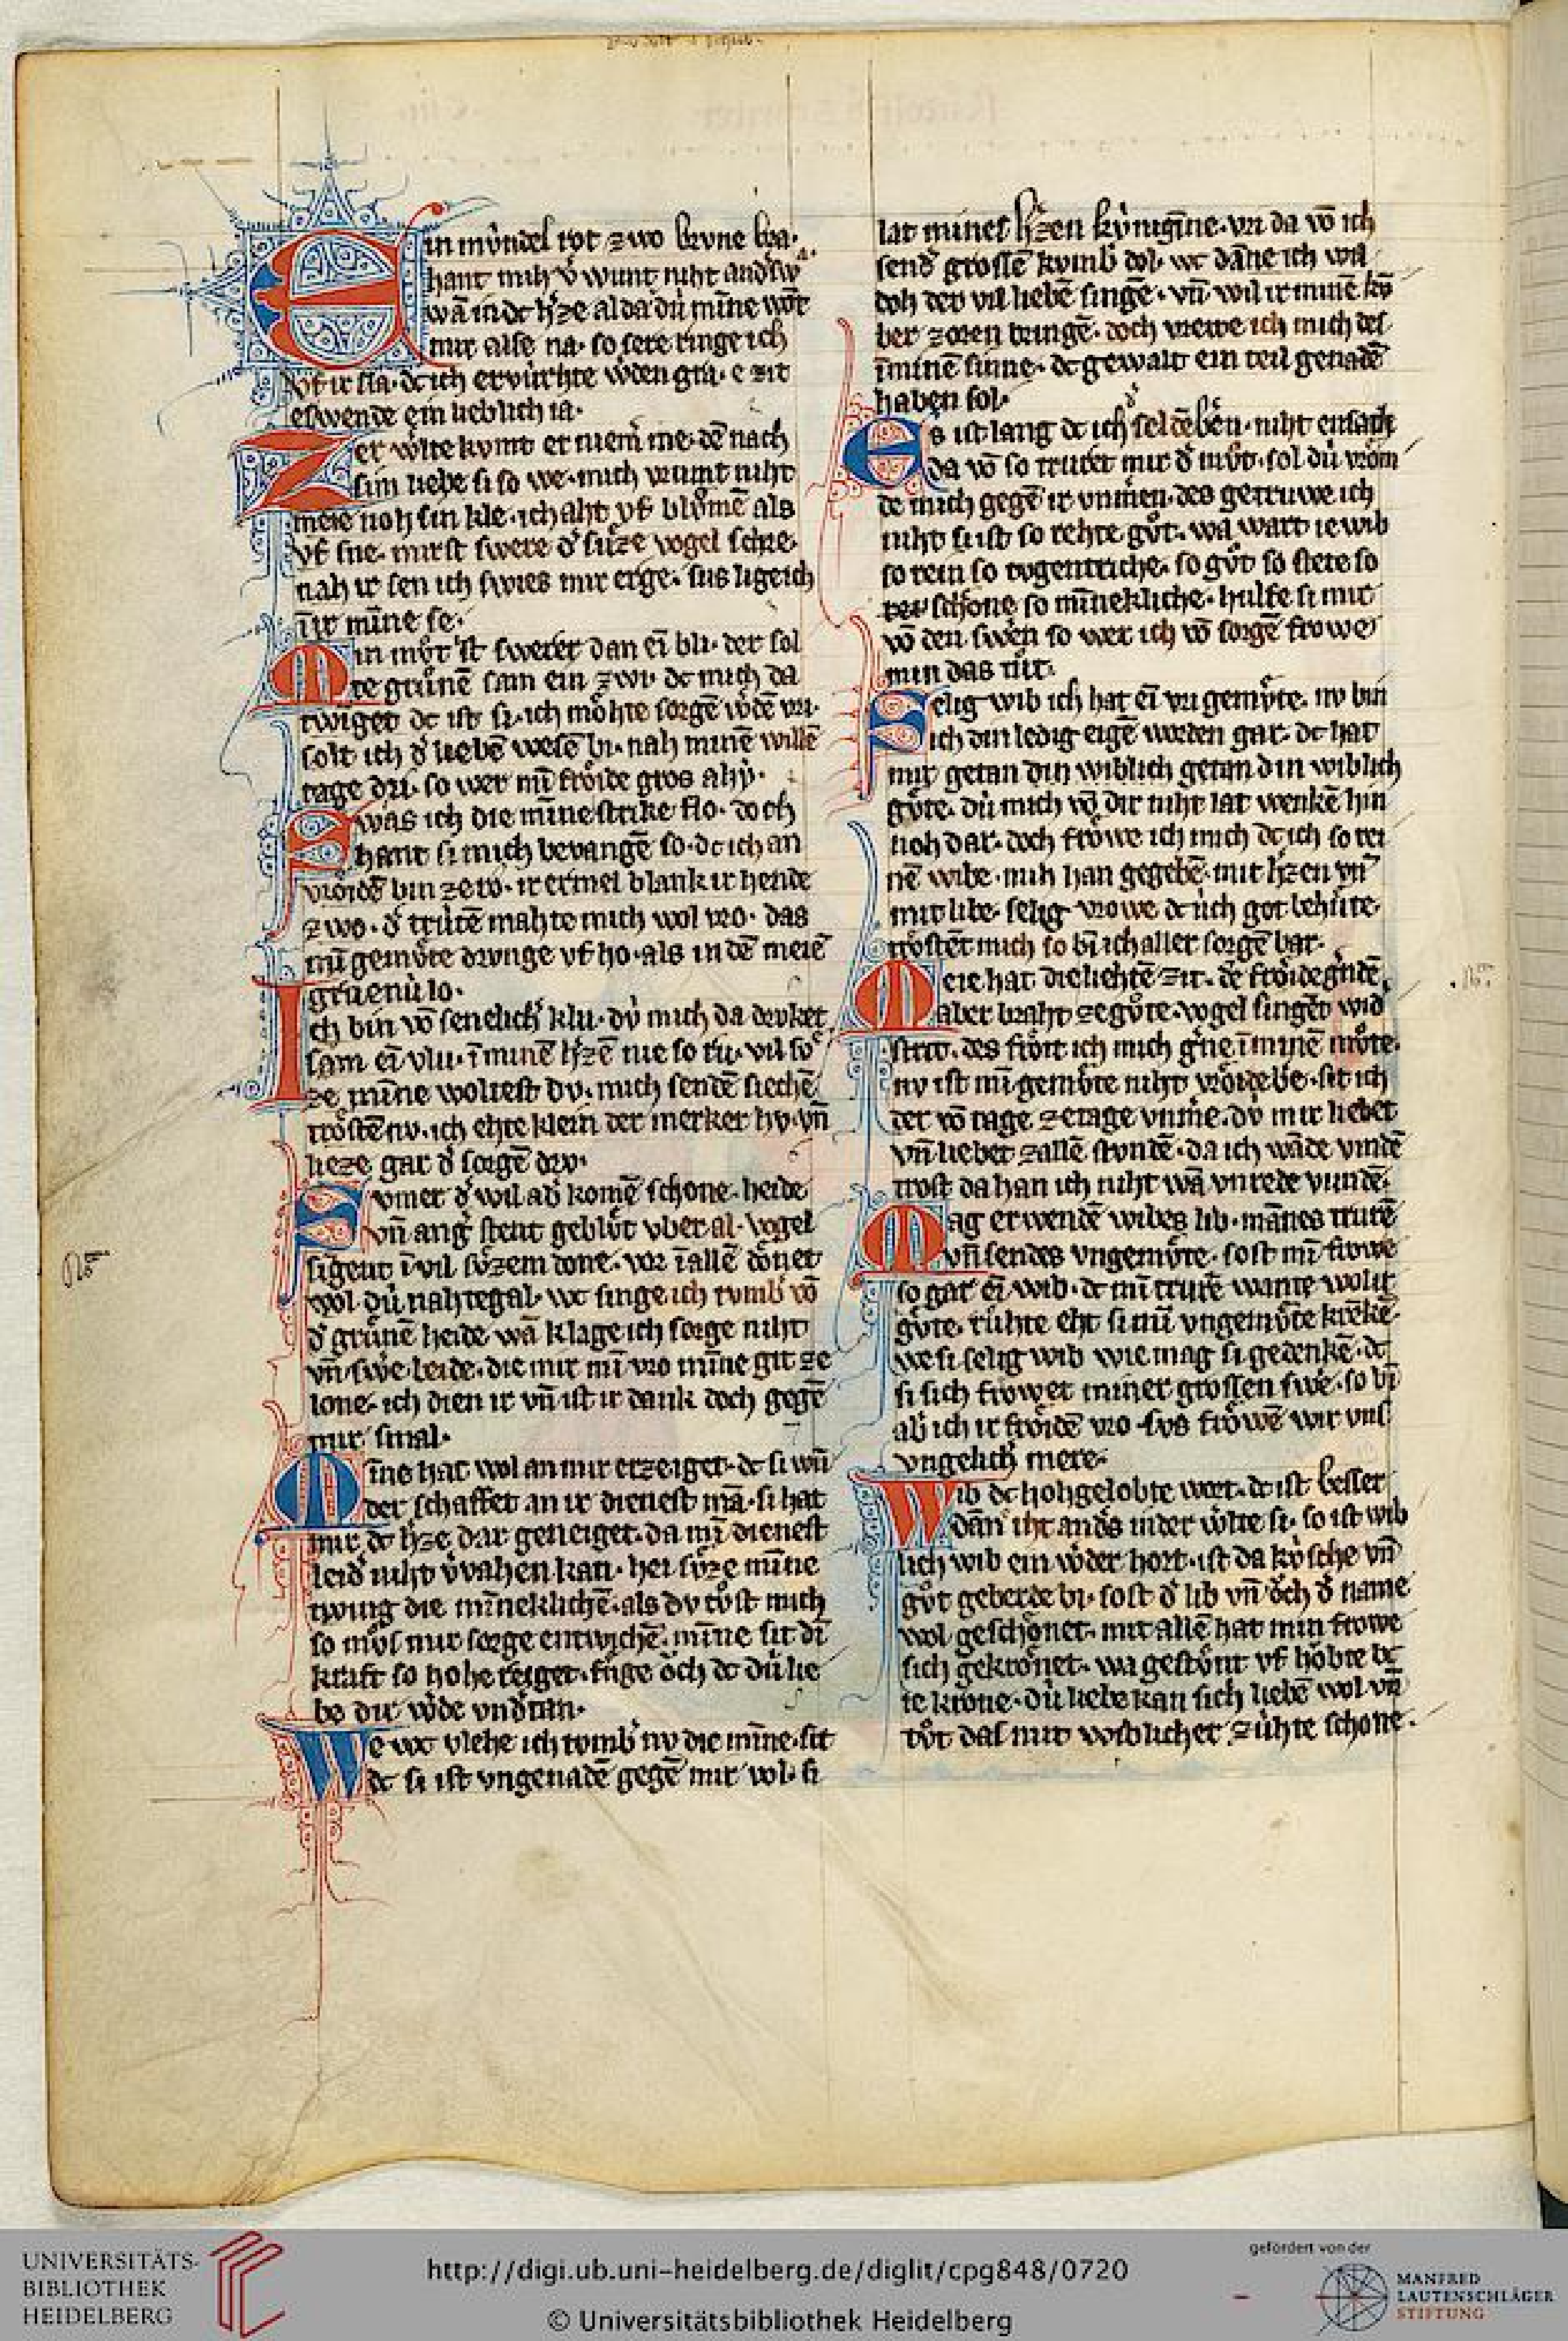 Ein mv̍ndel rot zwo brvne bra·
hant mih v̉wunt niht anders wa·
wā in dc h̉ze al da dú mīne wōt
mir alse na· so sere ringe ich
vf ir sla· dc ich ervúrhte w̉den gra· e zit
es wende ein lieblich ia·
Zer w̉lte kvmt er niem̉ me· dē nach
sim liebe si so we· mich vrumt niht
meie noh sin kle· ich aht vf blůmē als
vf sne· mirst swere d̉ süze vogel schre·
nah ir sen ich swies mir erge· sus lige ich
in̄ ir mīne se·
Min můt ist swerer dan eī bli· der sol
te grůnē sam ein zwi· dc mich da
twīget dc ist si· ich möhte sorgē w̉dē vri·
solt ich d̉ liebē wesē bi· nah minē willē
tage dri· so wer mī frőide gros ahy·
Swas ich die mīne strike flo· doch
hant si mich bevangē so· dc ich an
vrőidē bin ze ro· ir ermel blank ir hende
zwo· d̉ trútē mahte mich wol vro· das
mī gemv̊te drvnge vf ho· als in dē meiē
grúenú lo·
Ich bin vō senelich̉ klu· dv́ mich da drvket
sam eī vlu· ī minē h̉zē nie so rú· vil sö
ze mīne woltest dv· mich sendē siechē
trőstē nv· ich ehte klein der merker hv· vn̄
lieze gar d̉ sorgē drv·
Svmer d̉ wil ab̉ komē schone· heide
vn̄ ang̉ stent geblůt vber al· vogel
sīgent ī vil sv̊zem done· vor ī allē dőnet
wol dú nahtegal· wc singe ich tvmb̉ vō
d̉ grůnē heide wā klage ich sorge niht
vn̄ sw̉e beide· die mir mī vro mīne git ze
lone· ich dien ir vn̄ ist ir dank doch gegē
mir smal·
Mīne hat wol an mir erzeiget· dc si wū
der schaffet an ir dienest mā· si hat
mir dc h̉ze dar geneiget· da mī dienest
leid̉ niht v̉vahen kan· hei sv̊ze mīne
twing die mīneklichē· als dv tůst mich
so můs mir sorge entwichē· mīne sit dī
kraft so hohe seiget· füge őch dc dú lie
be dir w̉de vnd̉tan·
We wc vlehe ich tvmb̉ nv die mīne· sit
dc si ist vngenadē gegē mir vol· si
lat mines h̉zen kv́nigīne· vn̄ da vō ich
send̉ grossē kvmb̉ dol· wc dāne ich wil
doh der vil liebē singē· vn̄ wil ir minē
ber zoren bringē· doch vrewe ich mich des
ī minē sinne· dc gewalt ein teil genadē
haben sol·
Es ist lang dc ich seldēb̉en· niht ensach
da vō so truret mir d̉ mv̊t· sol dú vröm
de mich gegē ir vnīnen· des getruwe ich
niht si ist so rehte gůt· wa wart ie wib
so rein so tvgentriche· so gůt so stete so
schone so mīnekliche· hulfe si mir
vō den sw̉en so wer ich vō sorgē frowe
min das tůt·
Selig wib ich hat eī vri gemv̊te· nv bin
ich din ledig eigē worden gar· dc hat
mir getan din wiblich getan din wiblich
gv̊te· dú mich vō dir niht lat wenkē hin
noh dar· doch frőwe ich mich dc ich so rei
nē wibe· mih han gegebē· mit h̉zen vn̄
mit libe· selig vrowe dc úch got behúte·
trőstēt mich so bī ich aller sorgē bar·
Meie hat die liehtē zit· dē frőide g̉ndē
aber braht ze gůte· vogel singēt wid̉
strit· des frőit ich mich g̉ne ī minē můte·
nv ist mī gemv̊te niht vrőidebē· sit ich
der vō tage ze tage vnīne· dv mir liebet
vn̄ liebet zallē stvndē· da ich wāde vindē
trost da han ich niht wā vnrede vundē·
Mag erwendē wibes lib· mānes trurē
vn̄ sendes vngemv̊te· sost mī frowe
so gar eī wib· dc mī trurē wante wol ir
gv̊te· růhte eht si mī vngemv̊te krēkē·
we si selig wib wie mag si gedenkē· dc
si sich frőwet miner grossen sw̉e· so bī
ab̉ ich ir frőidē vro· svs frőwē wir vns
vngelich̉ mere·
Wib dc hohgelobte wort· dc ist besser
dan̄ iht and̉s in der w̉lte si· so ist wib
lich wib ein w̉der hort· ist da kv́sche vn̄
gůt geberde bi· sost d̉ lib vn̄ őch d̉ name
wol geschőnet· mit allē hat min frowe
sich gekrőnet· wa gestůnt vf hőbte
te krone· dú liebe kan sich liebē wol vn̄
tůt das mit wiblicher zúhte schone·
UNIVERSITÄTS-
BIBLIOTHEK
HEIDELBERG
http://digi.ub.uni-heidelberg.de/diglit/cpg848/0720
© Universitätsbibliothek Heidelberg
gefördert von der
MANFRED
LAUTENSCHLÄGER
STIFTUNG